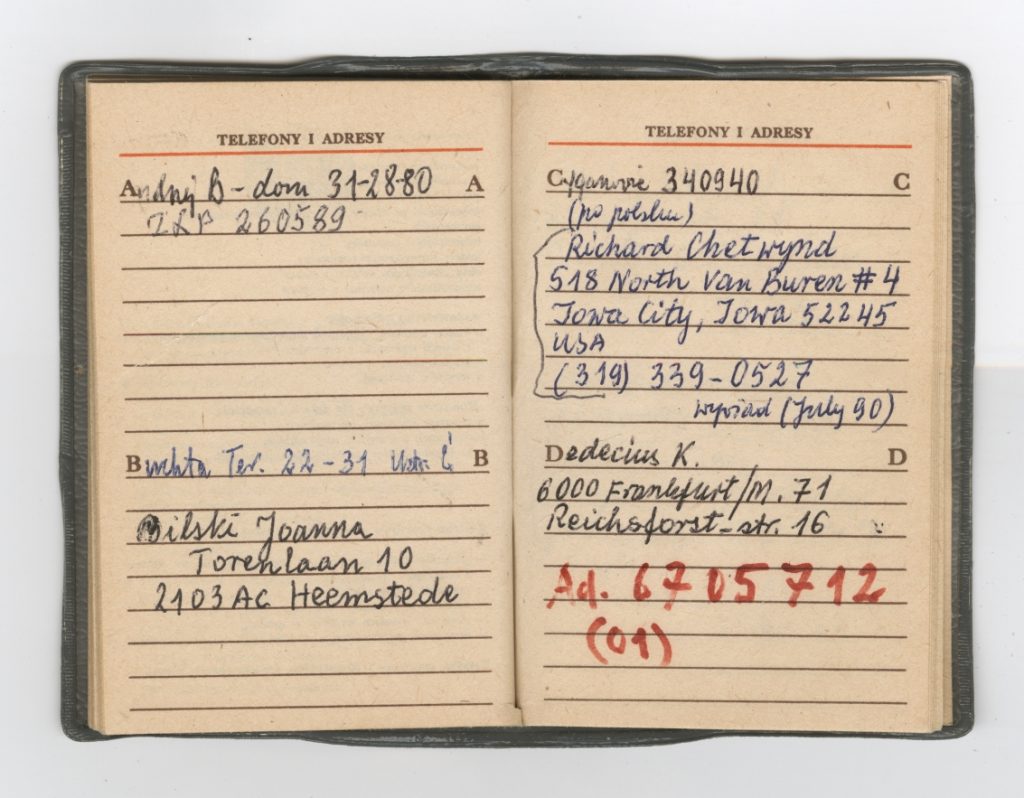 TELEFONY I ADRESY
Andrzej B - dom 31-28-80 A
ZLP 260589
Buchta Ter. 22-31 Ustr. B
Bilski Joanna
Torenlaan 10
2103 AC Heemstede
TELEFONY I ADRESY
Cyganowie 340940 C
(po polsku)
Richard Chetwynd
518 North Van Buren # 4
Iowa City, Iowa 52245
USA
(319) 339-0527
wywiad (July 90)
Dedecius K. D
6000 Frankfurt/M. 71
Reichsforst-str. 16
Ad. 6705712
(01)